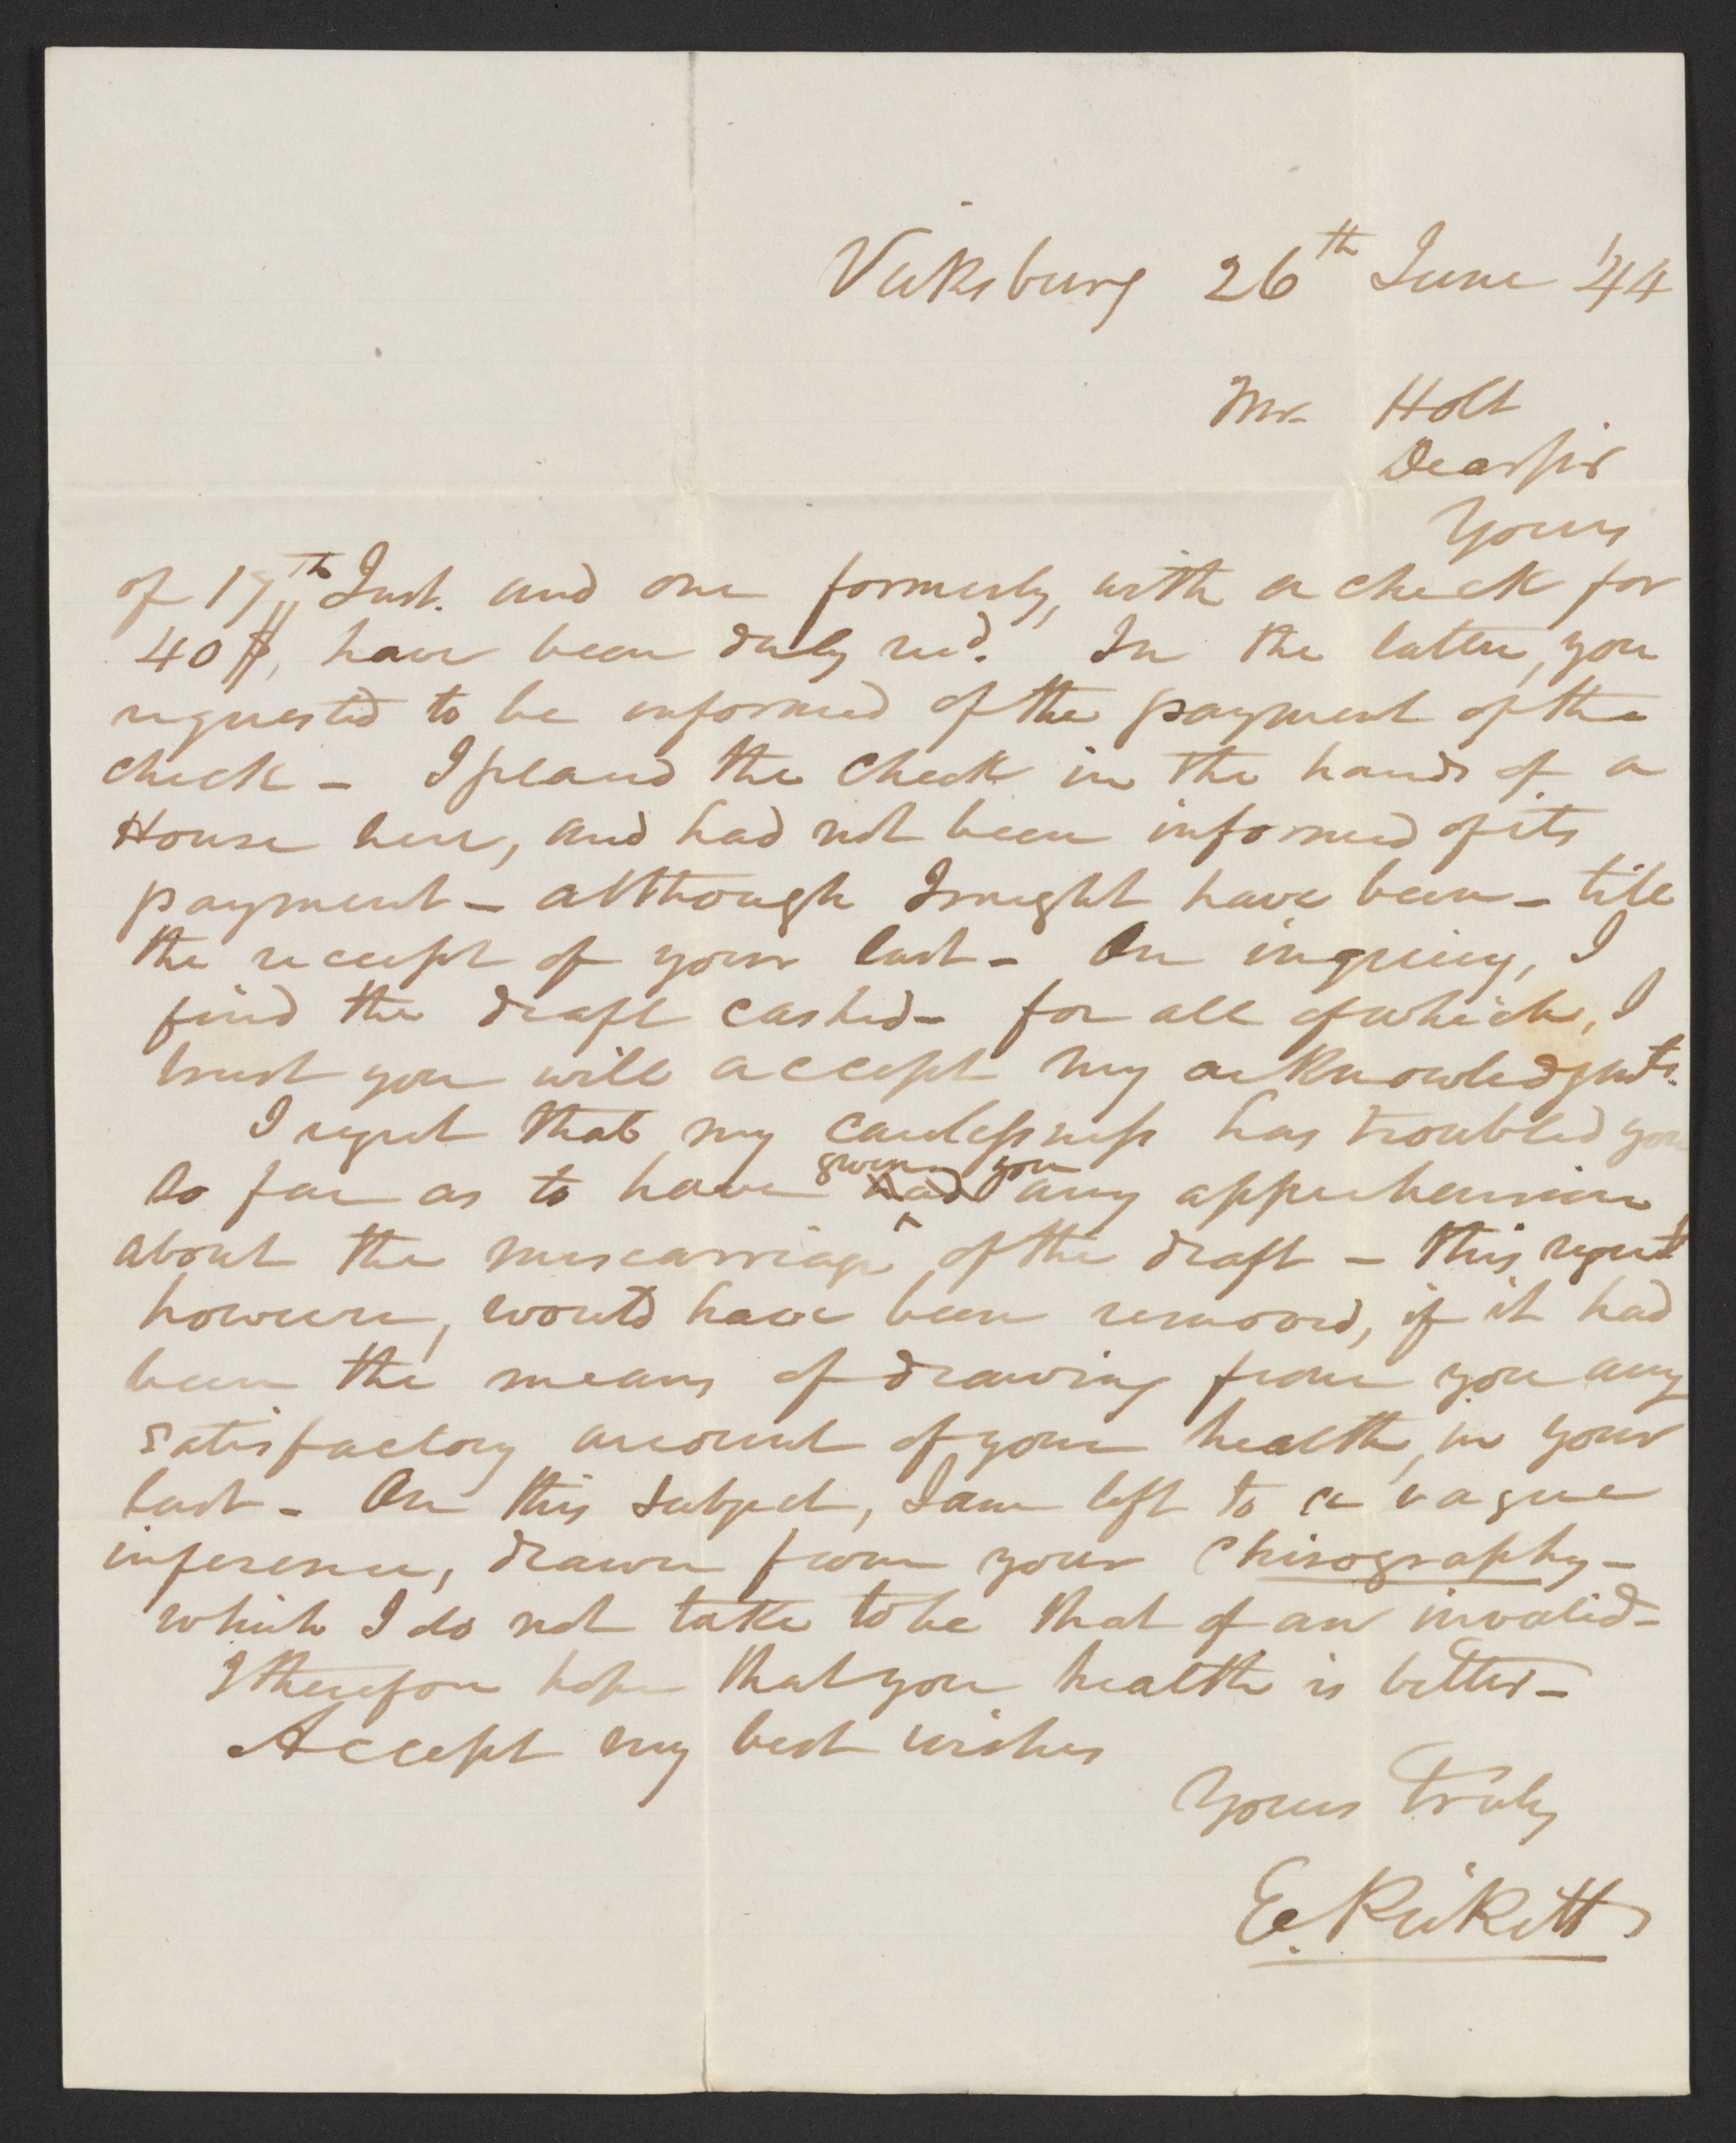 Vicksburg 26th June '44
Mr. Holt
Dear Sir
Yours
of 17th Inst. and one formerly, with a check for
40$, have been duly recd. In the latter, you
requested to be informed of the payment of the
check - I placed the check in the hands of a
House here, and had not been informed of its
payment - although I might have been - till
the receipt of your last - On inquiry, I
find the draft cashed - for all of which, I
trust you will accept my acknowledgmts.
I regret that my carelessness has troubled you
so far as to have given you had any apprehension
about the miscarriage of the draft - this regret
however, would have been removed, if it had
been the means of drawing from you any
satisfactory account of your health, in your
last - On this subject, I am left to a vague
inference, drawn from your chirography -
which I do not take to be that of an invalid -
I therefore hope that you health is better -
Accept my best wishes
Yours truly
E. Pickett